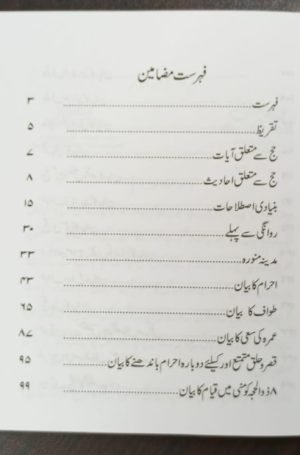 فہرست مضامین
فہرست ........ ۳
تقریظ ........ ۵
حج سے متعلق آیات ........ ۷
حج سے متعلق احادیث ........ ۸
بنیادی اصطلاحات ........ ۱۵
روانگی سے پہلے ........ ۳۰
مدینہ منورہ ........ ۳۳
احرام کا بیان ........ ۴۳
طواف کا بیان ........ ۶۵
عمرہ کی سعی کا بیان ........ ۸۷
قصر و حلق متمتع اور کیلئے دوبارہ احرام باندھنے کا بیان ........ ۹۵
۸ ذوالحجہ کو منٰی میں قیام کا بیان ........ ۹۹